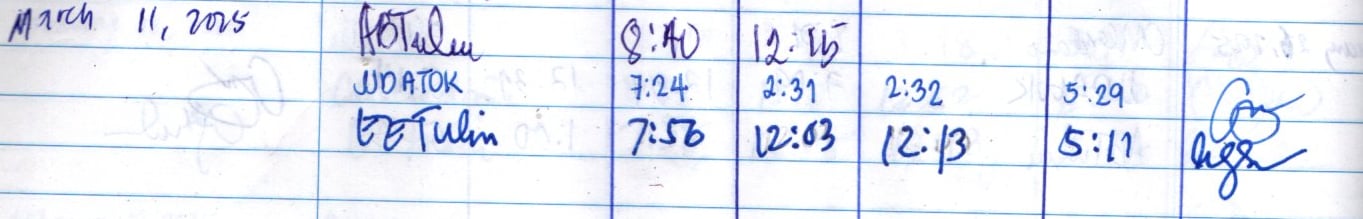 March 11, 2025 ABTulin 8:40 12:15
JJDATOK 7:24 2:31 2:32 5:29
EETulin 7:56 12:03 12:13 5:11